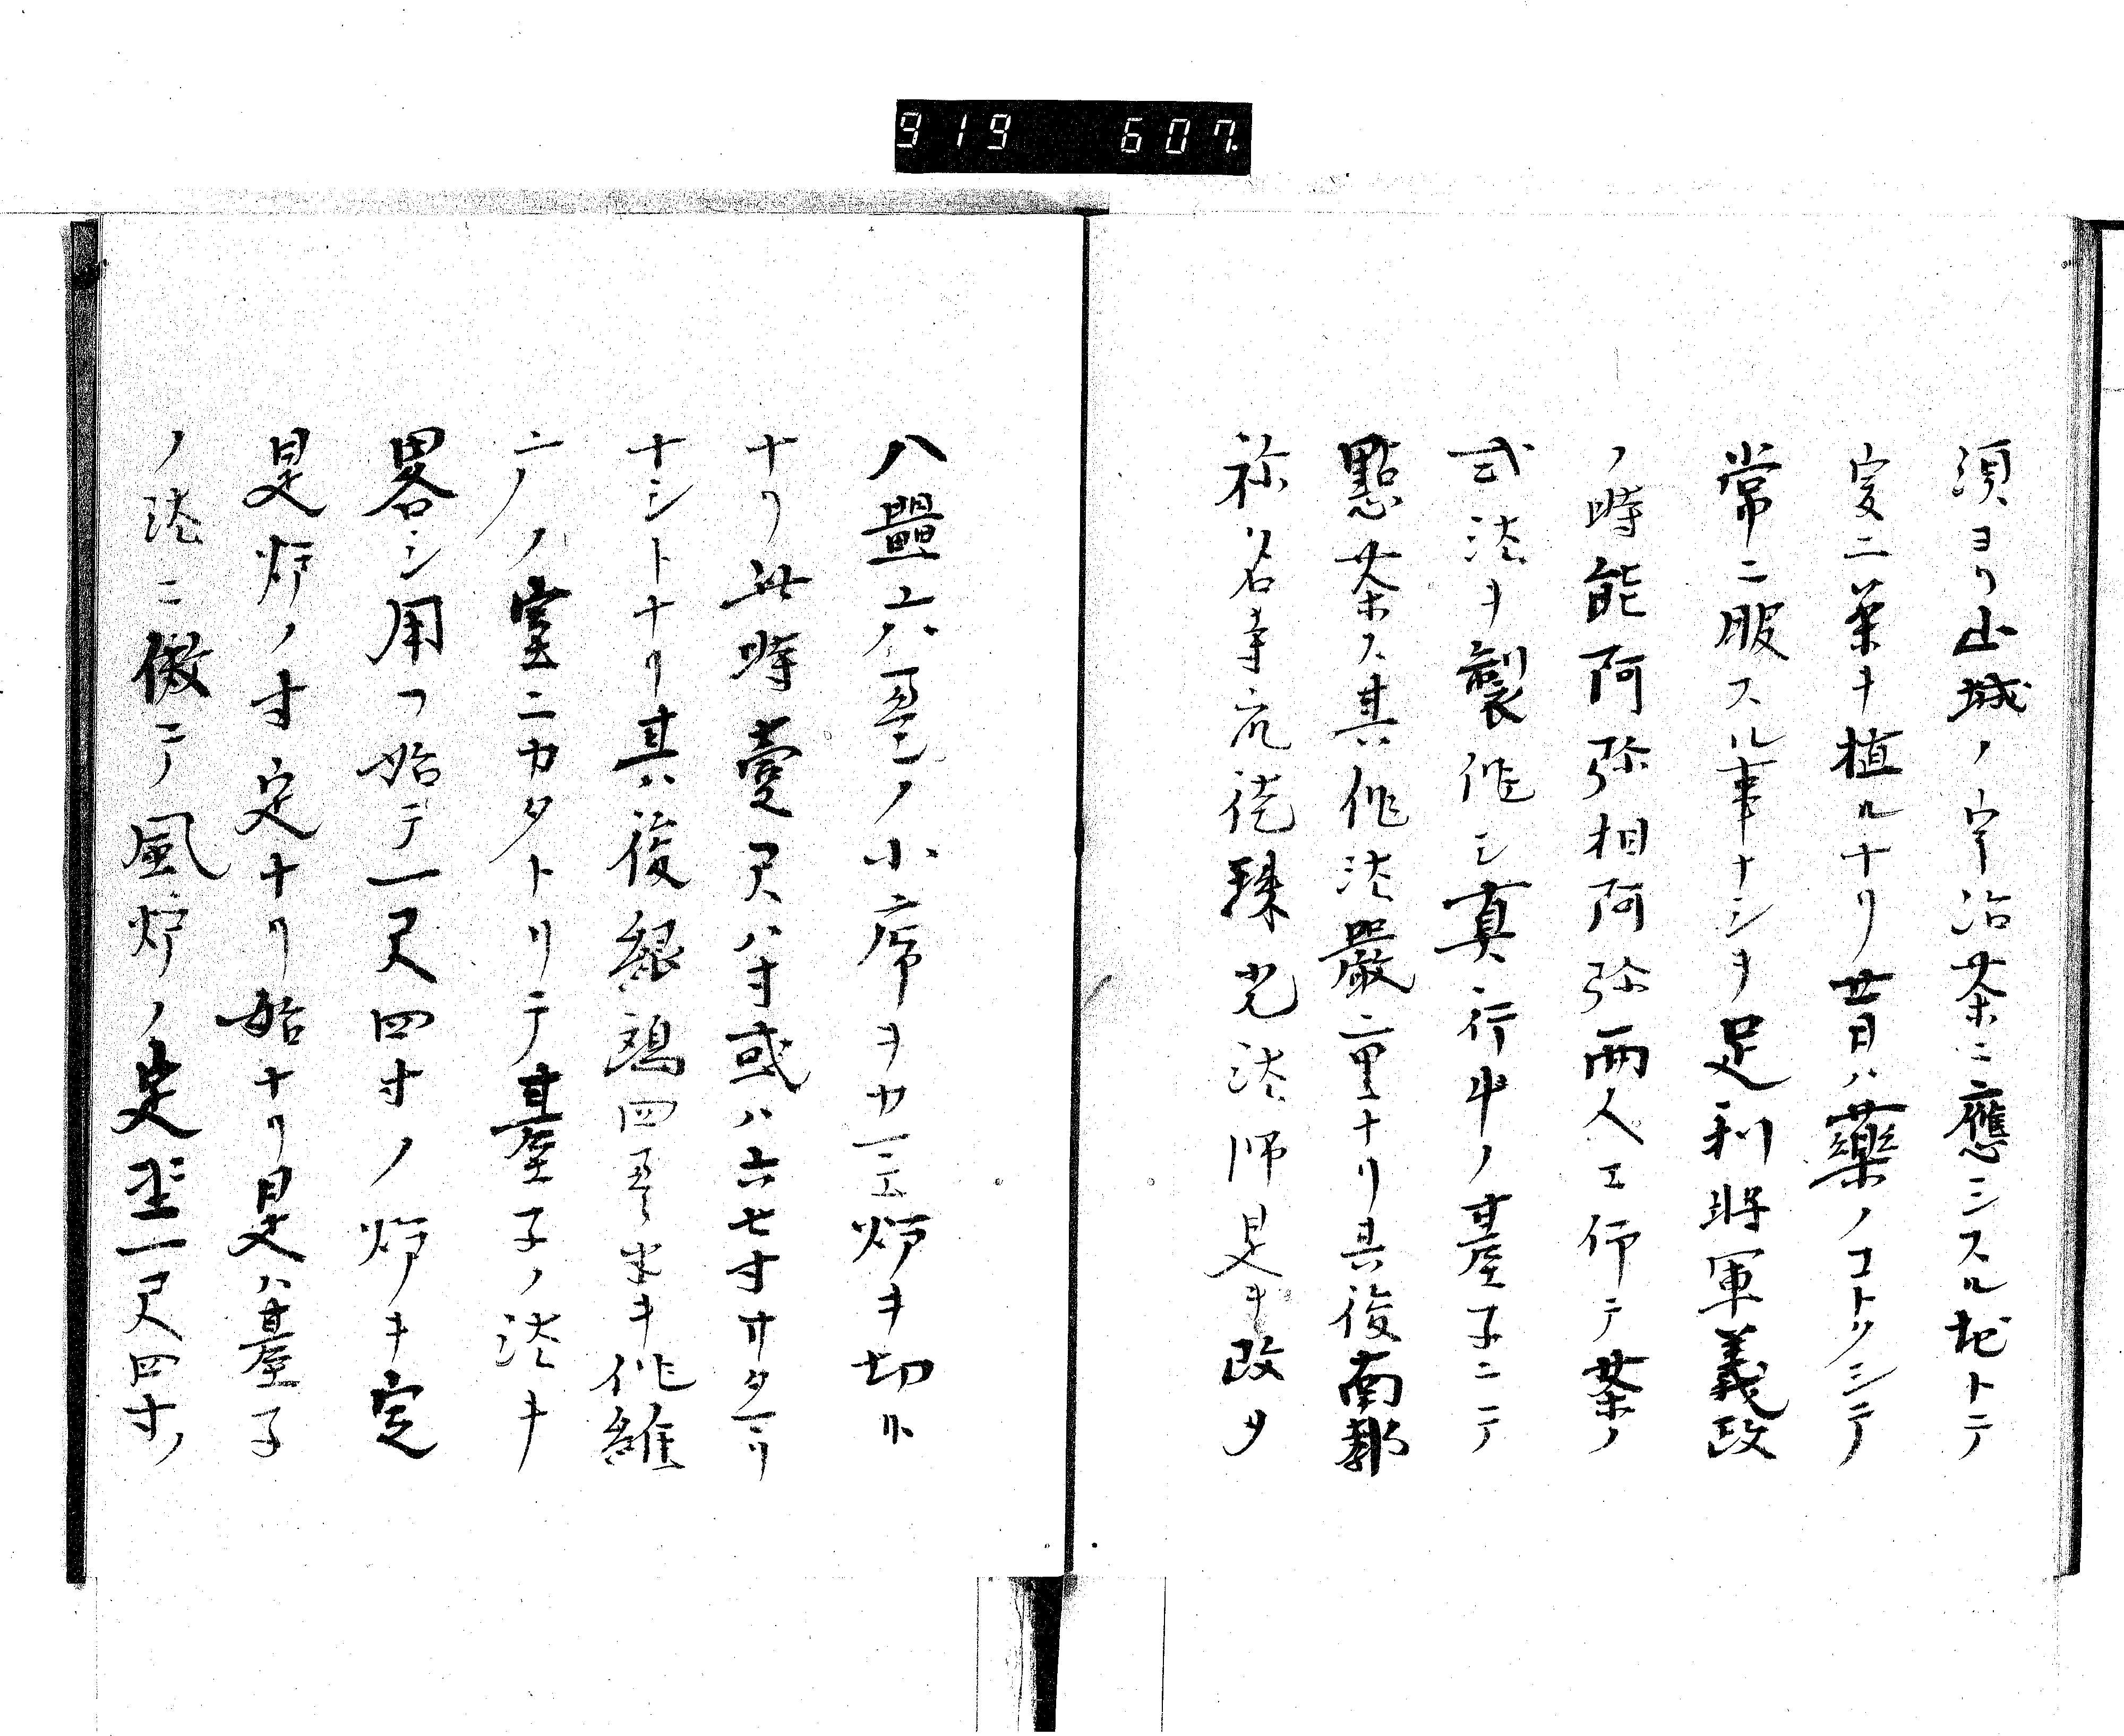 919 607.
須ヨリ山城ノ宇治茶ニ應シスル地トテ
爰ニ葉ヲ植ルナリ昔ハ藥ノコトクシテ
常ニ服スル事ナシヲ足利将軍義政
ノ時能阿弥相阿弥両人エ仰テ茶ノ
式法ヲ製作シ真行ノ臺子ニテ
點茶ス其作法嚴重ナリ其後南都
称名寺ノ徒珠光法師是ヲ改メ
八疊六疊ノ小席ヲカマエ炉ヲ切ル
ナリ此時壹尺八寸或ハ六七寸サタマリ
ナシトナリ其後紹鴎四疊半ヲ作維
广ノ室ニカタトリテ臺子ノ法ヲ
畧シ用フ始テ一尺四寸ノ炉ヲ定
是炉ノ寸定ナリ始ナリ是ハ臺子
ノ法ニ倣テ風炉ノ定坐一尺四寸ノ